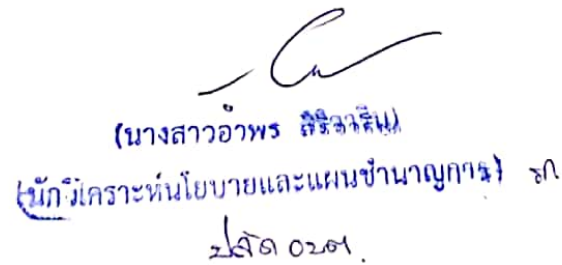 (นางสาวอำพร
(นักวิเคราะห์นโยบายและแผนชำนาญการ) รก
ปลัด อบต.